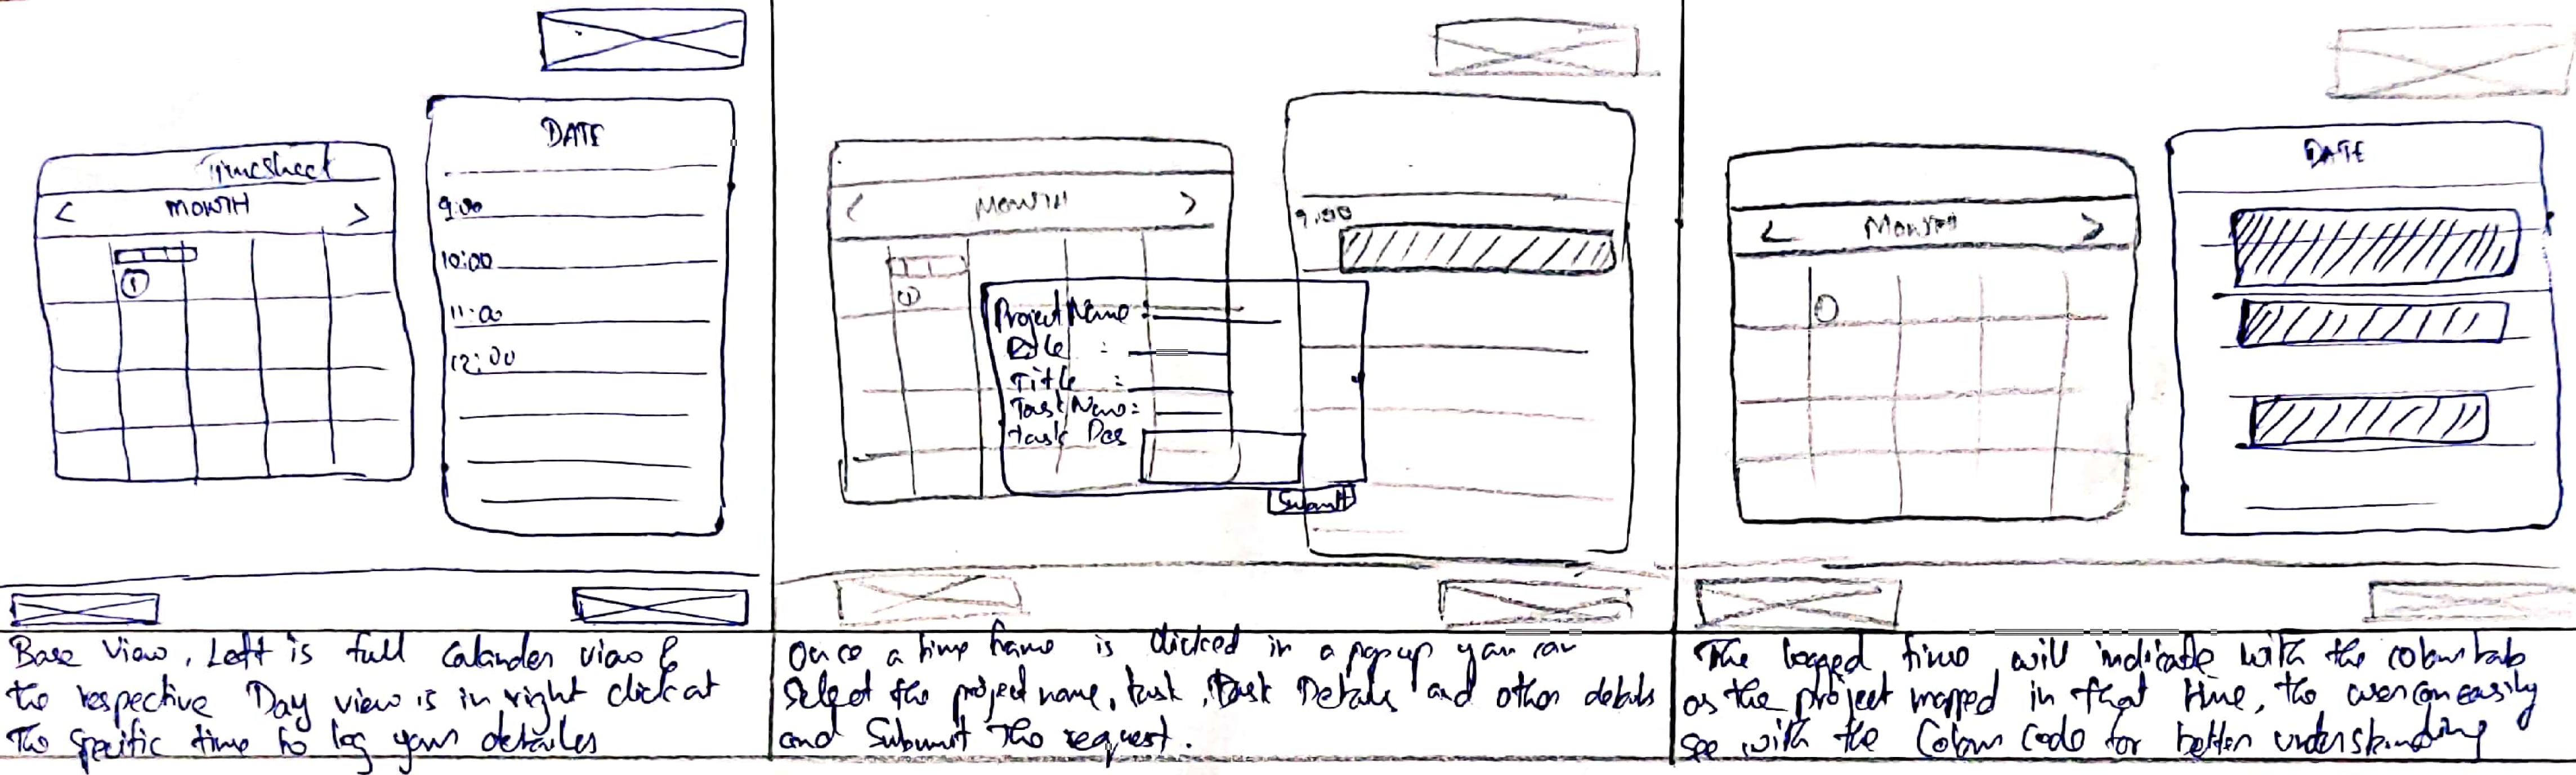 DATE
Timesheet
< MONTH >
9:00
10:00
11:00
12:00
1
Base View, Left is full Calander view &
the respective Day view is in right click at
The Specific time to log your detailes
< MONTH >
9:00
1
Project Name :
Title :
Task Name :
Task Des
Submit
Once a time frame is clicked in a popup you can
Select the project name, task, Task Details and other details
and Subumit The request.
DATE
< MONTH >
The logged time will indicate with the colour tab
as the project mapped in that time, the user can easily
see with the Colour Code for better understanding